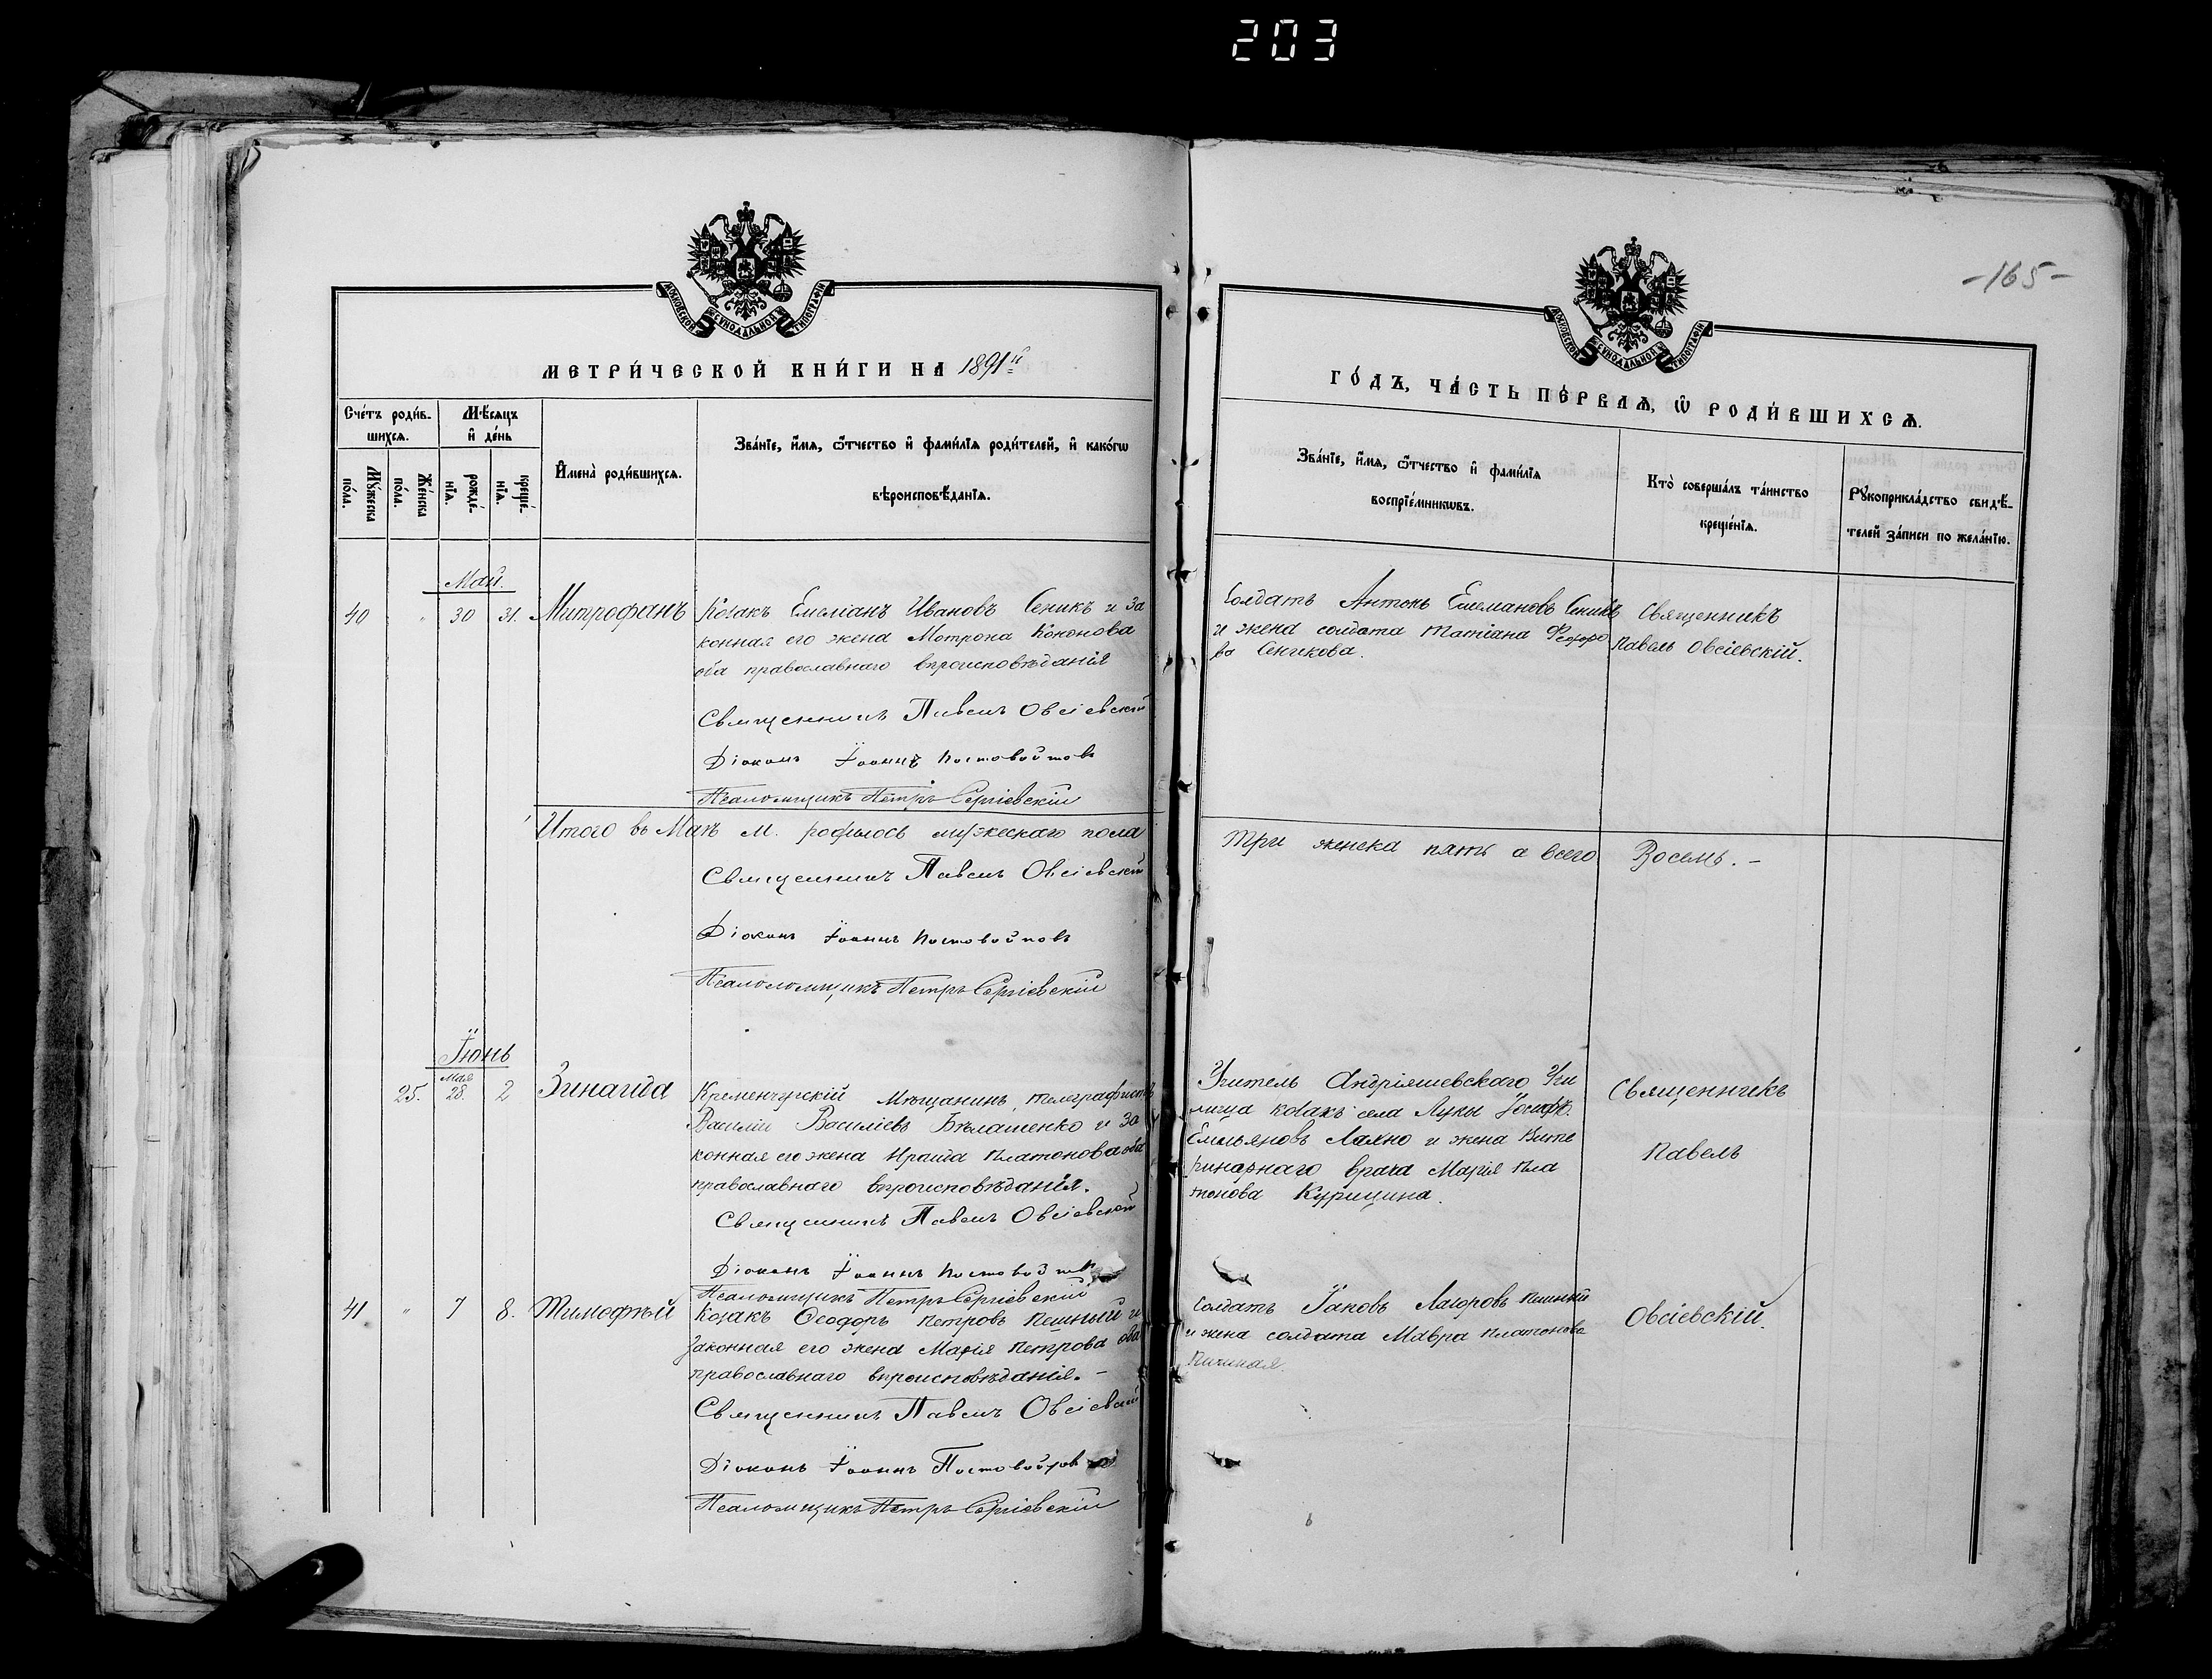 203
-165-
МОСКОВСКОЙ СѴНОДАЛЬНОЙ ТИПОГРАФІИ
МОСКОВСКОЙ СѴНОДАЛЬНОЙ ТИПОГРАФІИ
МЕТРИ́ЧЕСКОЙ КНИ́ГИ НА 1891й
ГО́ДЪ, ЧА́СТЬ ПЕ́РВАѦ, Ѡ҆ РОДИ́ВШИХСѦ.
Сче́тъ роди́в-
шихсѧ.
Мꙋ́жеска
по́ла.
Же́нска
по́ла.
Мѣ́сѧцъ
и҆ де́нь
рожде́-
нїѧ.
креще́-
нїѧ.
И҆мена̀ роди́вшихсѧ.
Зва́нїе, и҆́мѧ, ѻ҆́тчество и҆ фами́лїѧ роди́телей, и҆ како́гѡ
вѣроисповѣ́данїѧ.
Зва́нїе, и҆́мѧ, ѻ҆́тчество и҆ фами́лїѧ
воспрїе́мникѡвъ.
Кто̀ соверша́лъ та́инство
креще́нїѧ.
Рꙋкоприкла́дство свидѣ́-
телей за́писи по жела́нїю.
Май.
40 " 30 31. Митрофанъ
Козакъ Емеліанъ Ивановъ Сеникъ и за
конная его жена Мотрона Кононова
оба православнаго вѣроисповѣданія
Священникъ Павелъ Овсіевскій
Діаконъ Іоаннъ Постовойтовъ
Псаломщикъ Петръ Сергіевскій
Солдатъ Антонъ Емелiановъ Сеникъ
и жена солдата Татіана Феодоро
ва Сеникова.
Священникъ
Павелъ Овсіевскій.
Итого въ Маѣ м. родилось мужескаго пола
три женска пять а всего Восемь. –
Священникъ Павелъ Овсіевскій
Діаконъ Іоаннъ Постовойтовъ
Псаломщикъ Петръ Сергіевскій
Іюнь
25. Мая 28. 2 Зинаида
Кременчугскій Мѣщанинъ, телеграфистъ
Василій Василіевъ Бѣлашенко и за
конная его жена Ираида Платонова оба
православнаго вѣроисповѣданія.
Священникъ Павелъ Овсіевскій
Діаконъ Іоаннъ Постовойтовъ
Псаломщикъ Петръ Сергіевскій
Учитель Андріяшевскаго Учи
лища козакъ села Луки Іосифъ
Емельяновъ Лахно и жена Вите
ринарнаго врача Марія Пла
тонова Курицина.
Священникъ
Павелъ
41 " 7 8. Тимофѣй
Козакъ Ѳеодоръ Петровъ Пешный и
законная его жена Марія Петрова оба
православнаго вѣроисповѣданія. –
Священникъ Павелъ Овсіевскій
Діаконъ Іоаннъ Постовойтовъ
Псаломщикъ Петръ Сергіевскій
Солдатъ Іаковъ
и жена солдата Мавра Платонова
Овсіевскій.